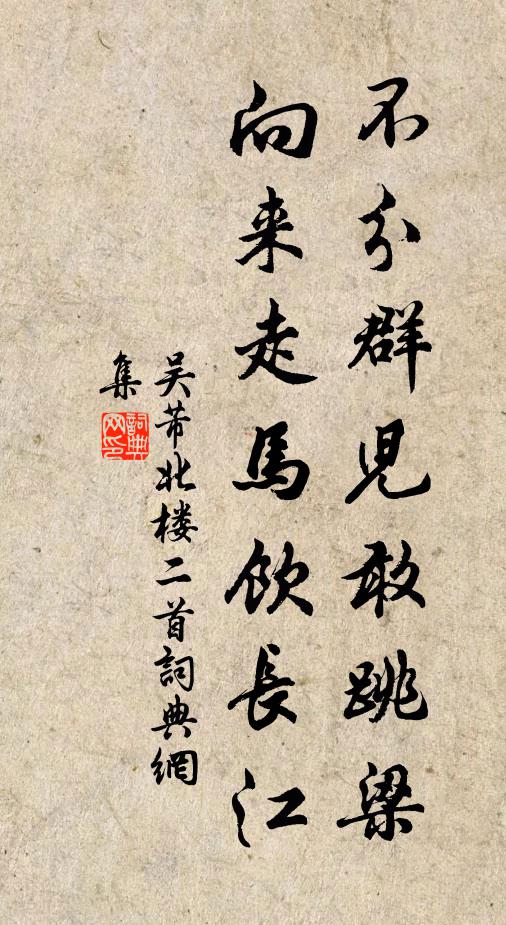 不分群児敢跳梁
向来走馬飲長江
吴芾北楼二首詞典網
集
詞典網印